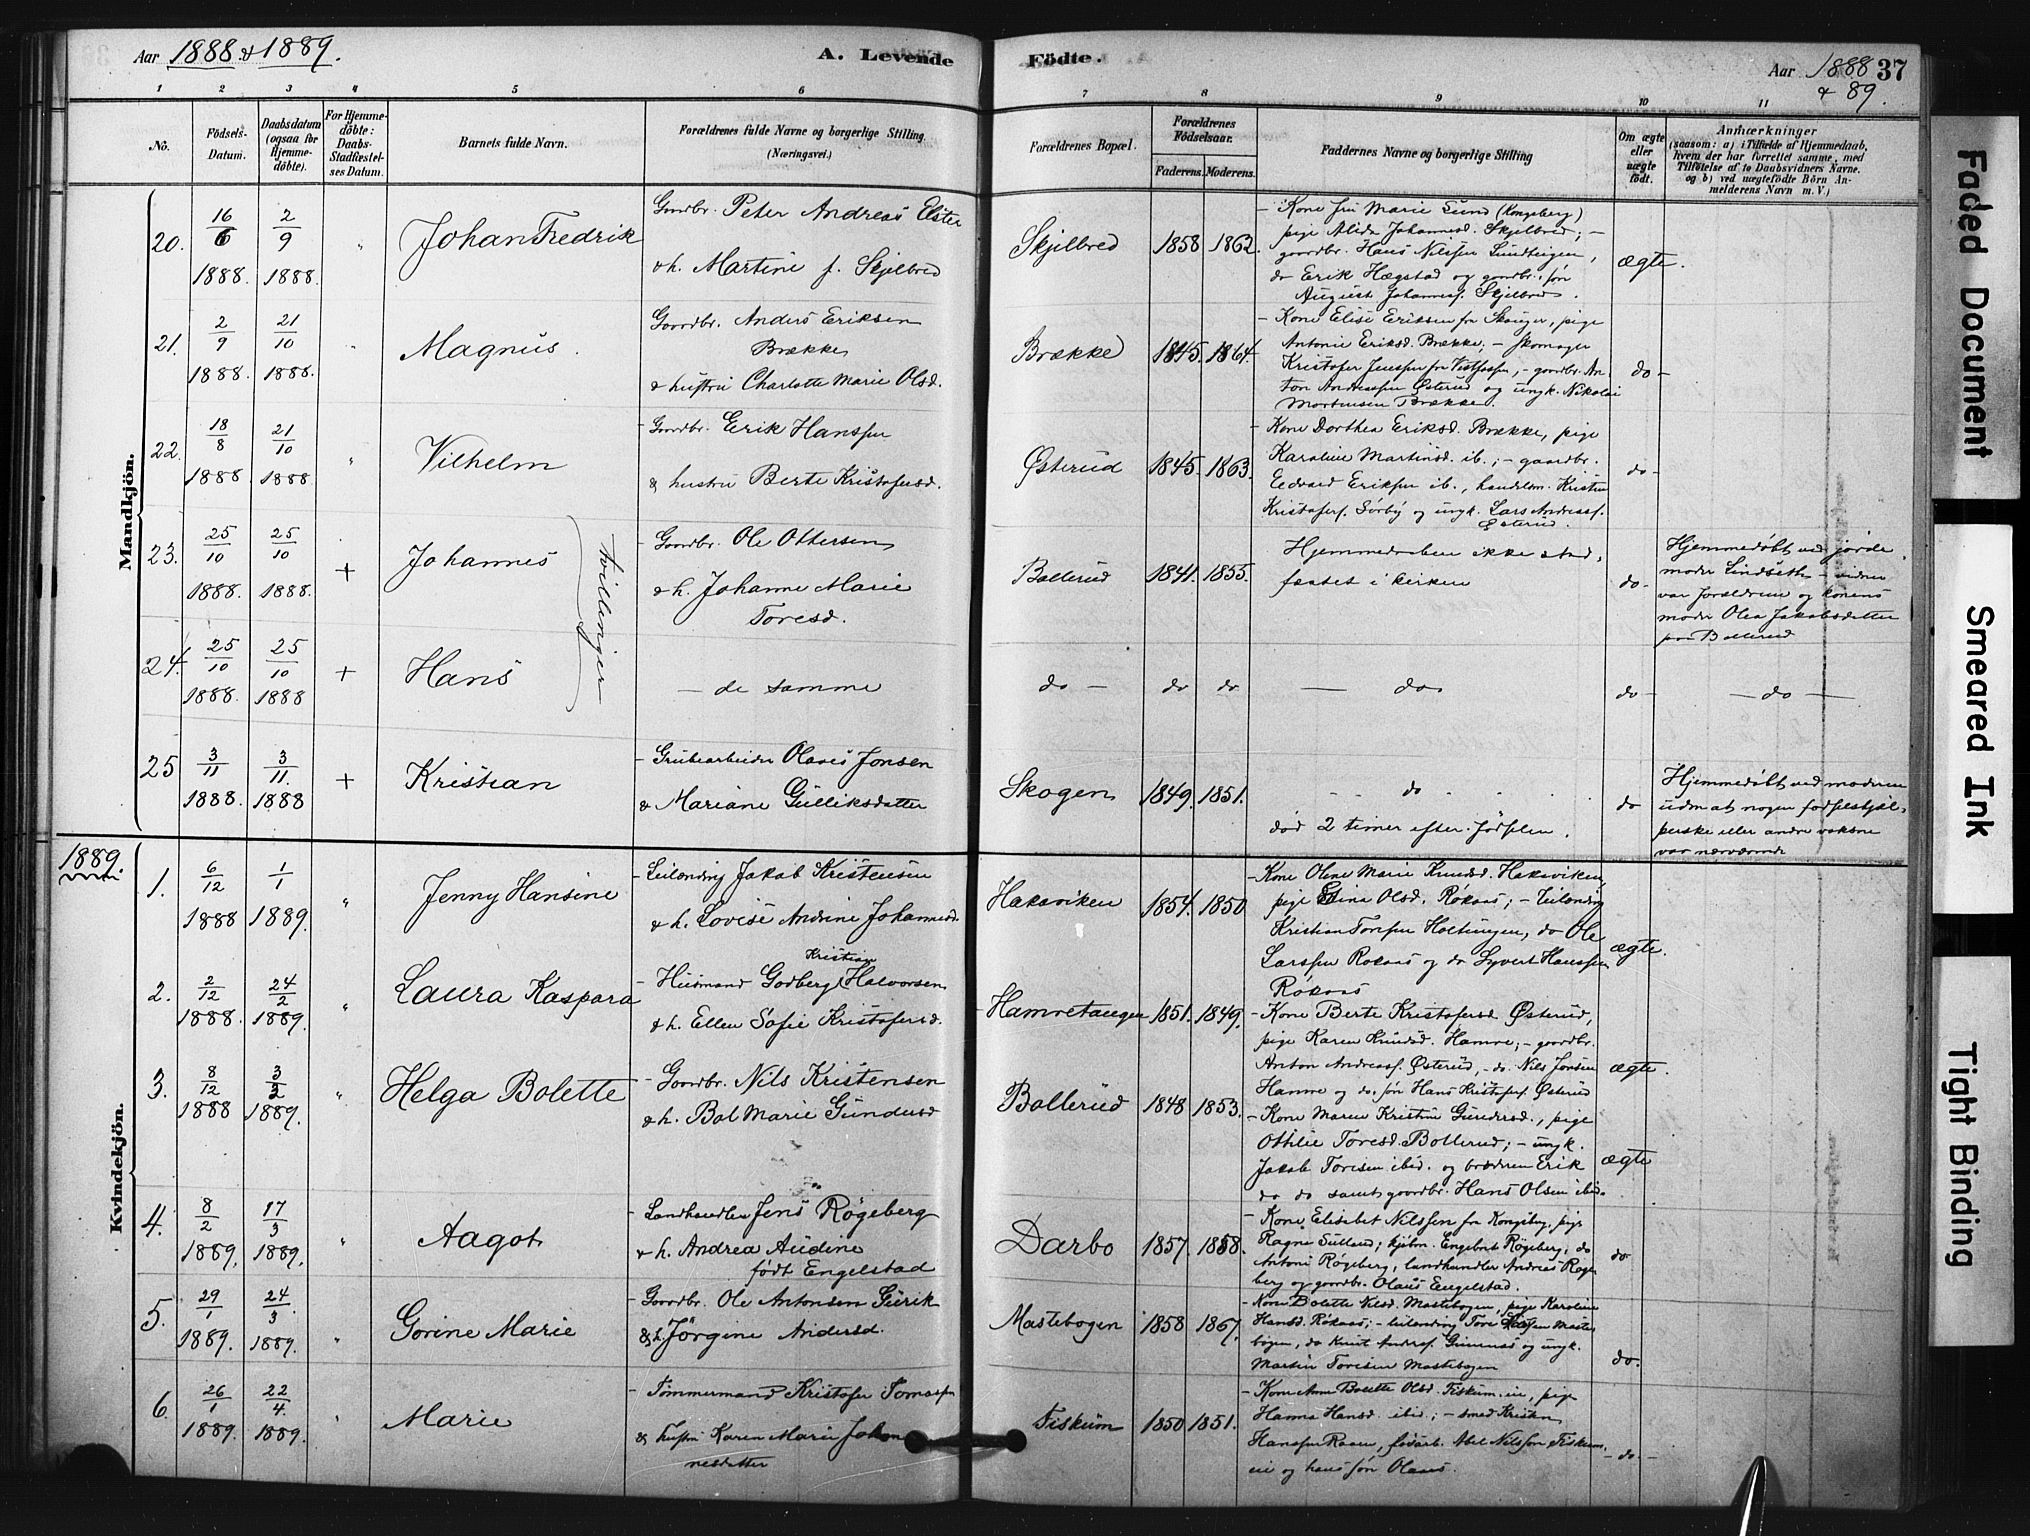 Aar 1888 & 1889.
A. Levende
Födte.
Aar 1888 37
& 89.
1 2 3 4 5 6 7 8 9 10 11
Nô.
Födsels-
Datum.
Daabsdatum
(ogsaa för
Hjemme-
döbte).
For Hjemme-
döbte:
Daabs-
Stadfæstel-
ses Datum.
Barnets fulde Navn.
Forældrenes fulde Navne og borgerlige Stilling.
(Næringsvei.)
Forældrenes Bopæl.
Forældrenes
Födselsaar.
Faderens. Moderens.
Faddernes Navne og borgerlige Stilling
Om ægte
eller
uægte
födt.
Anmærkninger
(saasom: a) i Tilfælde af Hjemmedaab,
hvem der har forrettet samme, med
Tilföielse af to Daabsvidners Navne.
og b) ved uægtefödte Börn An-
melderens Navn m. V.)
Mandkjön.
20.
16/6 1888.
2/9 1888.
"
Johan Fredrik
Gaardbr. Peter Andreas Elster
& h. Martine f. Skjelbred
Skjelbred
1858 1862.
- Kone fru Marie Lund (Kongsberg)
pige Alida Johannesd. Skjelbred; -
gaardbr. Hans Nilssen
do Erik Hægstad og gaardbr. søn
August Johanness. Skjelbred.
ægte.
21.
2/9 1888
21/10 1888.
"
Magnus.
Gaardbr. Anders Eriksen
Brække
& hustru Charlotte Marie Olsd.
Brække
1845. 1864.
- Kone Elise Eriksen fra Skouger, pige
Antonie Eriksd. Brække, - skomager
Kristofer Jenssen fra Vestfossen, - gaardbr. An-
ton Andreassen Østerud og ungk. Nikolai
Mortensen Brække.
do -
22.
18/8 1888.
21/10 1888
"
Vilhelm
- Gaardbr. Erik Hanssen
& hustru Berte Kristofersd.
Østerud
1845. 1863.
- Kone Dorthea Eriksd. Brække, pige
Karoline Martinsd. ib.; - gaardbr.
Edvard Eriksen ib., handelsm. Kristen
Kristofers. Sørby og ungk. Lars Andreass.
Østerud.
do -
23.
25/10 1888.
25/10 1888.
+
Johannes
tvillinger
- Gaardbr. Ole Ottersen
& h. Johanne Marie
Toresd.
Bollerud
1841. 1855.
Hjemmedaaben ikke stad-
fæstet i kirken
do -
Hjemmedøbt ved jorde-
moder Lindseth - vidner
var forældrene og konens
moder Olea Jakobsdatter
paa Bollerud
24.
25/10 1888.
25/10 1888
+
Hans
- de samme
do - do do - do do - - do -
25
3/11 1888.
3/11. 1888
+
Kristian
- Grubearbeider Olaves Jonsen
& Mariane Gulliksdatter
Skogen
1849. 1851.
- - do
død 2 timer efter fødselen.
do
Hjemmedøbt ved moderen
uden at nogen fødselshjæl-
perske eller andre voksne
var nærværende
1889.
Kvindekjön.
1.
6/12 1888
1/1 1889.
"
Jenny Hansine
- Leilænding Jakob Kristensen
& h. Lovise Andrine Johannesd.
Hakaviken
1854. 1850
- Kone Oline Marie Knudsd. Hakaviken,
pige Stina Olsd. Røkaas; - Leilænding
Kristian Toresen Holtungen, do Ole
Larssen Røkaas og do Syvert Hanssen
Røkaas
ægte.
2.
2/12 1888.
24/2 1889.
"
Laura Kaspara
- Husmand Godberg Kristian Halvorsen
& h. Ellen Sofie Kristofersd.
- Hamretangen
1851. 1849.
- Kone Berte Kristofersd. Østerud,
pige Karen Knudsd. Hamre; - gaardbr.
Anton Andreass. Østerud, - do. Nils Jonsen
Hamre og do. søn Hans Kristofers. Østerud
ægte.
3.
8/12 1888
3/3 1889.
"
Helga Bolette
- Gaardbr. Nils Kristensen
& h. Bol Marie Gundersd
Bollerud
1848 1853.
- Kone Maren Kristine Gundersd., pige
Ottilie Toresd. Bollerud; - ungk.
Jakob Toresen ibid. og brødrene Erik
do do samt gaardbr. Hans Olsen ibid.
ægte
4.
8/2 1889.
17/3 1889.
"
Aagot
- Landhandler Jens Røgeberg
& h. Andrea Audine
født Engelstad
Darbo
1857. 1858.
- Kone Elisabet Nilssen fra Kongsberg, pige
Ragna Sulland; kjøbm. Engebret Røgeberg, do
Antoni Røgeberg, landhandler Andreas Røge-
berg og gaardbr. Olaus Engelstad.
do
5.
29/1 1889.
24/3. 1889.
"
Gorine Marie
- Gaardbr. Ole Antonsen Gurik
& h. Jörgine Andersd.
Mastebogen
1858 1867.
- Kone Bolette Nilsd. Mastebogen, pige Karoline
Hansd. Røkaas; - leilænding Tore Maste-
bogen, do Knut Anders. og ungk.
Martin Toresen Mastebogen
do.
6.
26/1 1889.
22/4. 1889.
"
Marie
- Tømmermand Kristofer Tomassen
& hustru Karen Marie Johan-
nesdatter
Fiskum
1850 1851.
- Kone Anne Bolette Olsd. Fiskum-eie, pige
Hanna Hansd. ibid; - smed Kristen
Hanssen Raaen, flodarb. Abel Nilssen Fiskum-
eie og hans søn Olaus.
- do. -
Faded Document
Smeared Ink
Tight Binding